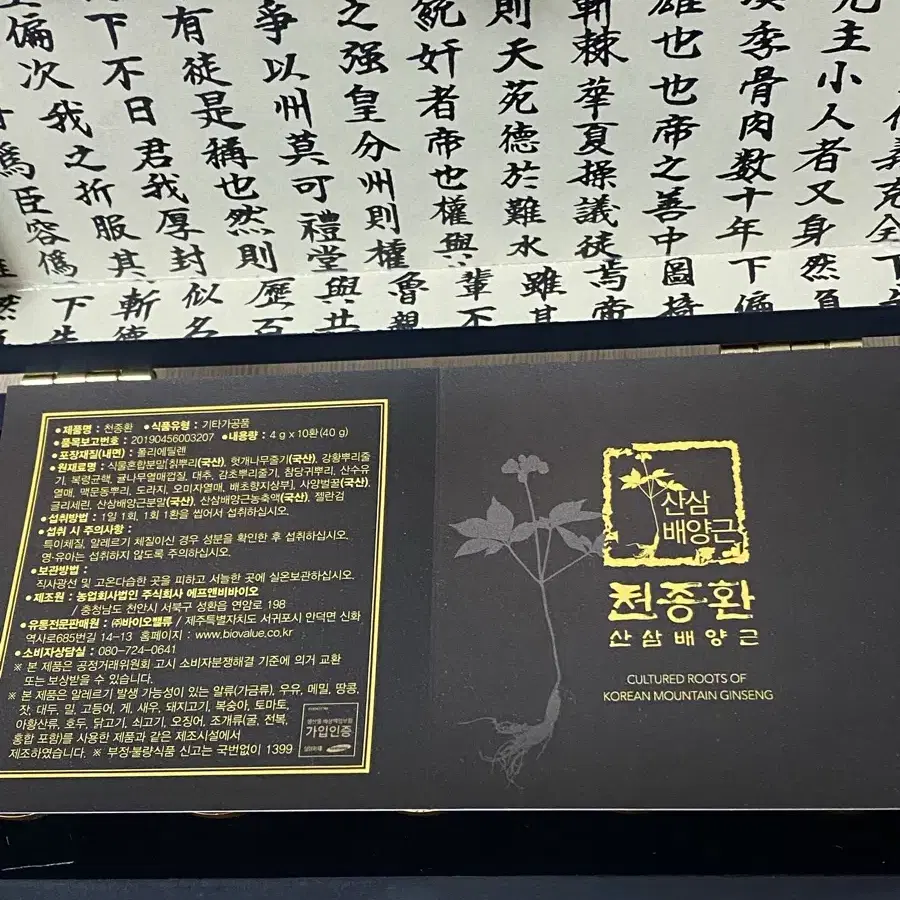 義克全下
主小人者又身然負
季骨肉数十年下偏
雄也也帝之善中圖
斬棘華夏操議徒焉帝
則天苑德於難水雖其
統奸者帝也權與輩不
之强皇分州則權魯親
爭以州莫可禮堂與共
有徒是稱也然則歷百
下不日君我厚封似名
偏次我之折服其斬德
爲臣容僞下
●제품명 : 천종환 ●식품유형 : 기타가공품
●품목보고번호 : 20190456003207 ●내용량 : 4 g x 10환(40 g)
●포장재질(내면) : 폴리에틸렌
●원재료명 : 식물혼합분말[칡뿌리(국산), 헛개나무줄기(국산), 강황뿌리줄
기, 복령균핵, 귤나무열매껍질, 대추, 감초뿌리줄기, 참당귀뿌리, 산수유
열매, 맥문동뿌리, 도라지, 오미자열매, 배초향지상부], 사양벌꿀(국산),
글리세린, 산삼배양근분말(국산), 산삼배양근농축액(국산), 젤란검
●섭취방법 : 1일 1회, 1회 1환을 씹어서 섭취하십시오.
●섭취 시 주의사항 :
특이체질, 알레르기 체질이신 경우 성분을 확인한 후 섭취하십시오.
영·유아는 섭취하지 않도록 주의하십시오.
●보관방법 :
직사광선 및 고온다습한 곳을 피하고 서늘한 곳에 실온보관하십시오.
●제조원 : 농업회사법인 주식회사 에프앤비바이오
/ 충청남도 천안시 서북구 성환읍 연암로 198
●유통전문판매원 : ㈜바이오밸류 / 제주특별자치도 서귀포시 안덕면 신화
역사로685번길 14-13 홈페이지 : www.biovalue.co.kr
●소비자상담실 : 080-724-0641
※ 본 제품은 공정거래위원회 고시 소비자분쟁해결 기준에 의거 교환
또는 보상받을 수 있습니다.
※ 본 제품은 알레르기 발생 가능성이 있는 알류(가금류), 우유, 메밀, 땅콩,
잣, 대두, 밀, 고등어, 게, 새우, 돼지고기, 복숭아, 토마토,
아황산류, 호두, 닭고기, 쇠고기, 오징어, 조개류(굴, 전복,
홍합 포함)를 사용한 제품과 같은 제조시설에서
제조하였습니다. ※ 부정·불량식품 신고는 국번없이 1399
가입인증
산삼
배양근
천종환
산삼배양근
CULTURED ROOTS OF
KOREAN MOUNTAIN GINSENG